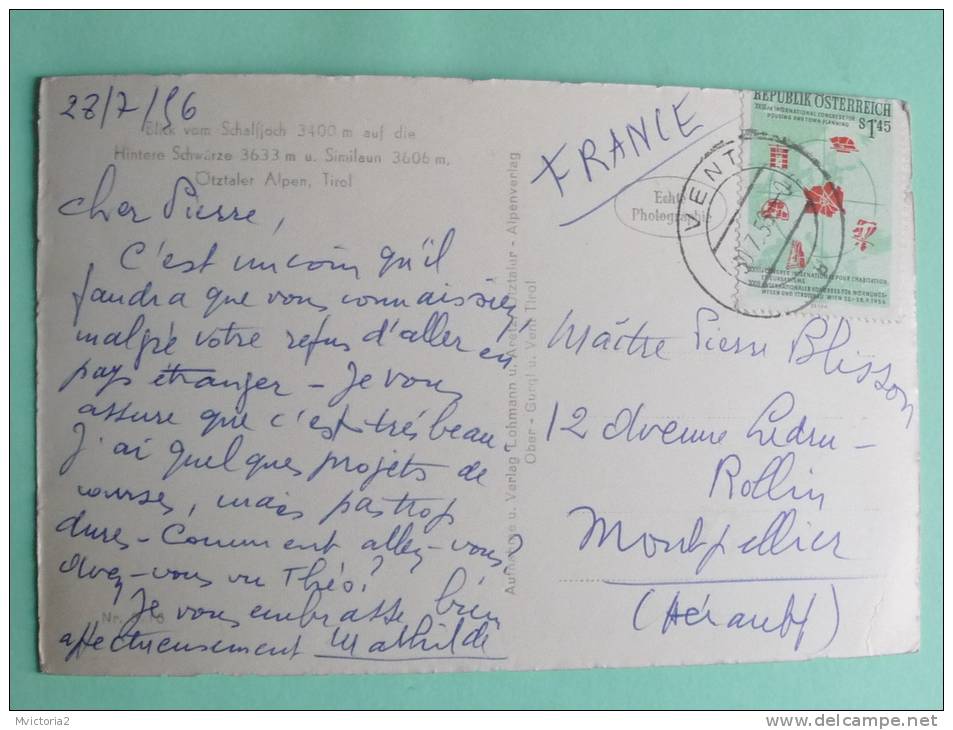 28/7/56
Blick vom Schalfjoch 3400 m auf die
Hintere Schwärze 3633 m u. Similaun 3606 m,
Ötztaler Alpen, Tirol
Cher Pierre,
C'est un coin qu'il
faudra que vous connaissiez,
malgré votre refus d'aller en
pays étranger - Je vous
assure que c'est très beau.
J'ai quelques projets de
courses, mais pas trop
dures - Comment allez-vous?
Avez-vous vu Théo?
Je vous embrasse bien
affectueusement Mathilde
Nr.
Aufnahme u. Verlag Lohmann u. Ötztaler - Alpenverlag
Ober - Gurgl u. Vent Tirol
FRANCE
Echte
Photographie
VENT
REPUBLIK ÖSTERREICH
XXIII INTERNATIONAL CONGRESS FOR
HOUSING AND TOWN PLANNING
S 1.45
Maître Pierre Blisson
12 Avenue Ledru-
Rollin
Montpellier
(Hérault)
Mvictoria2
www.delcampe.net